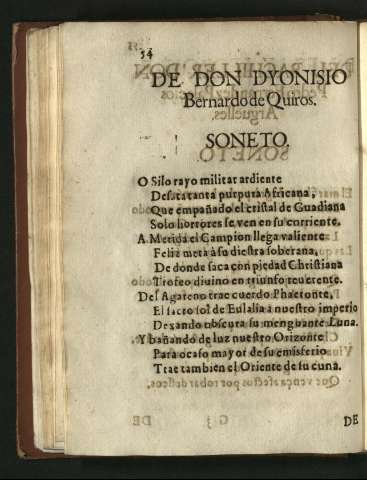 54
DE DON DYONISIO
Bernardo de Quiros.
SONETO.
O Silo rayo militar ardiente
Desata tanta purpura Africana,
Que empañado el cristal de Guadiana
Solo horrores se ven en su corriente.
A Merida el Campion llega valiente
Feliz meta à su diestra soberana,
De donde saca con piedad Christiana
Trofeo divino en triunfo reverente.
Del Agareno trae cuerdo Phaetonte,
El sacro sol de Eulalia à nuestro imperio
Dexando obscura su menguante Luna.
Y bañando de luz nuestro Orizonte
Para ocaso mayor de su emisferio
Trae tambien el Oriente de su cuna.
DE